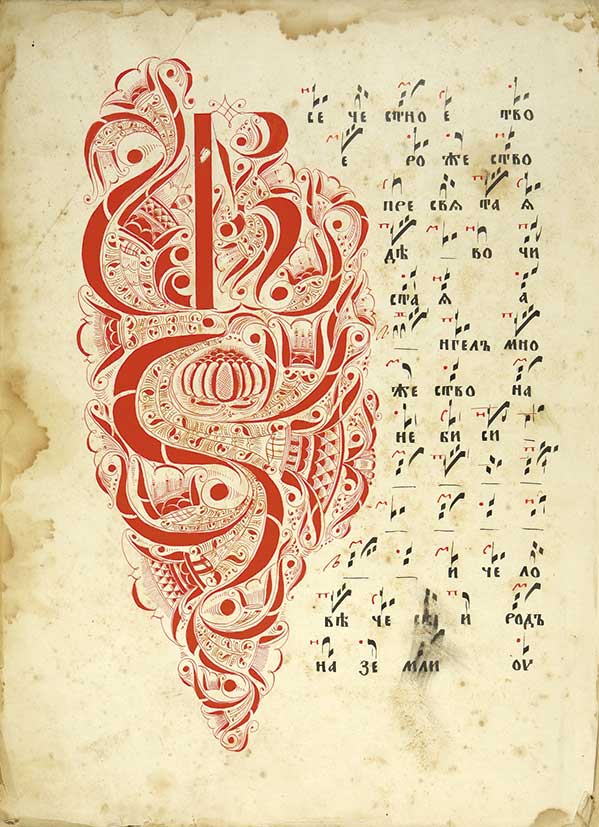 В
СЕ ЧЕ СТНО Е ТВО
Е РО ЖЕ СТВО
ПРЕ СВѦ ТА Ѧ
ДѢ ВО ЧИ
СТА Ѧ А
НГЕЛЪ МНО
ЖЕ СТВО НА
НЕ БИ СИ
И ЧЕ ЛО
ВѢ ЧЕ И РОДЪ
НА ЗЕ МЛИ ОУ